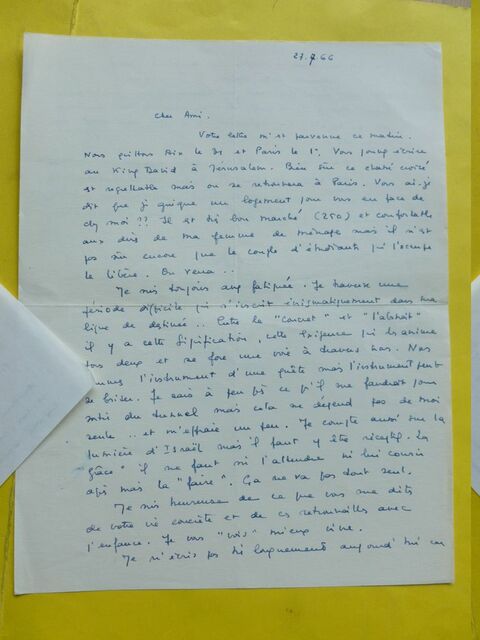 27.7.66
Cher Ami.
Votre lettre m'est parvenue ce matin.
Nous quittons Aix le 31 et Paris le 1er. Vous pouvez écrire
au King David à Jérusalem. Bien sûr ce chassé croisé
est regrettable mais on se retrouvera à Paris. Vous ai-je
dit que j'ai un logement pour vous en face de
chez moi ?? Il est très bon marché (250) et confortable
aux dires de ma femme de ménage mais il n'est
pas sûr encore que le couple d'étudiants qui l'occupe
le libère. On verra..
Je suis toujours aussi fatiguée. Je traverse une
période difficile qui s'inscrit énigmatiquement dans ma
ligne de destinée.. Entre le "concret" et "l'abstrait"
il y a cette signification, cette exigence qui les anime
tous deux et se fore une voie à travers nous. Nous
sommes l'instrument d'une quête mais l'instrument peut
se briser. Je sais à peu près ce qu'il me faudrait pour
sortir du tunnel mais cela ne dépend pas de moi
seule .. et m'effraie un peu. Je compte aussi sur la
lumière d'Israël mais il faut y être réceptif. La
"Grâce" il ne faut ni l'attendre ni lui courir
après mais la "faire". Ça ne va pas tout seul.
Je suis heureuse de ce que vous me dites
de votre vie concrète et de ces retrouvailles avec
l'enfance. Je vous "vois" mieux vivre.
Je n'écris pas très longuement aujourd'hui car